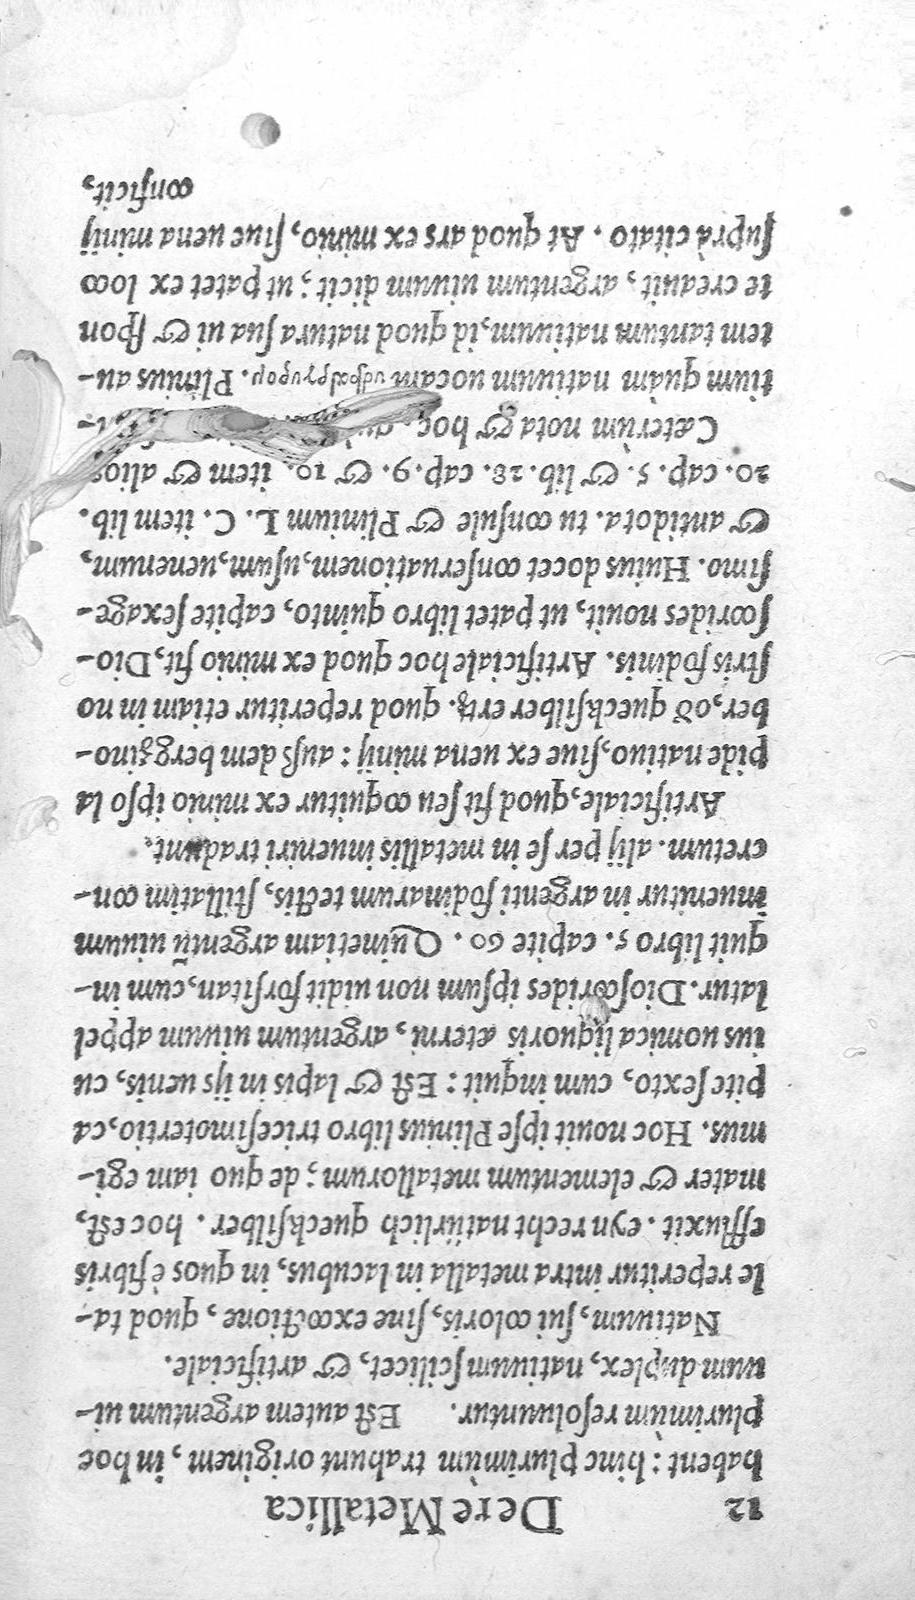 12 De re Metallica
habent: hinc plurimùm trahunt originem, in hoc
plurimùm resoluuntur. Est autem argentum ui-
uum duplex, natiuum scilicet, & artificiale.
Natiuum, sui coloris, sine excoctione, quod ta-
le reperitur intra metalla in lacubus, in quos è fibris
effluxit. eyn recht natürlich queckſilber. hoc est,
mater & elementum metallorum; de quo iam egi-
mus. Hoc nouit ipse Plinius libro tricesimotertio, ca
pite sexto, cum inquit: Est & lapis in ijs uenis, cu
ius uomica liquoris æterni, argentum uiuum appel
latur. Dioscorides ipsum non uidit forsitan, cum in-
quit libro 5. capite 60. Quinetiam argentū uiuum
inuenitur in argenti fodinarum tectis, stillatim con-
cretum. alij per se in metallis inueniri tradunt.
Artificiale, quod fit seu coquitur ex minio ipso la
pide natiuo, siue ex uena minij: auß dem bergzino-
ber, oď queckſilber ertz. quod reperitur etiam in no
stris fodinis. Artificiale hoc quod ex minio fit, Dio-
scorides nouit, ut patet libro quinto, capite sexage-
simo. Huius docet conseruationem, usum, uenenum,
& antidota. tu consule & Plinium L. C. item lib.
20. cap. 5. & lib. 28. cap. 9. & 10. item & alios
Cæterùm nota & hoc,
tium quàm natiuum uocam Plinius au-
tem tantum natiuum, id, quod natura sua ui & spon
te creauit, argentum uiuum dicit; ut patet ex loco
suprà citato. At quod ars ex minio, siue uena minij
conficit,